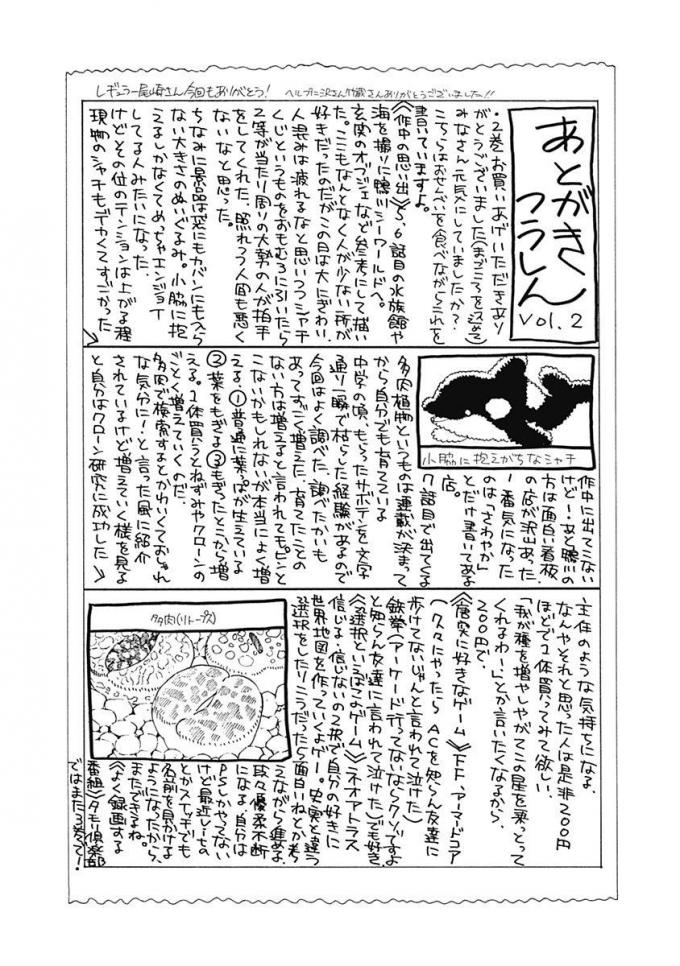 レギュラー尾崎さん今回もありがとう！
ヘルプに沢さん竹蔵さんありがとうございました!!
あとがき
つうしん
vol.2
・2巻お買いあげいただきあり
がとうございました（まごころを込めて）
みなさん元気にしていましたか？
こちらはおせんべいを食べながらこれを
書いていますよ。
《作中の思い出》5、6話目の水族館や
海を撮りに鴨川シーワールドへ。
玄関のオブジェなど参考にして描い
た。ここもなんとなく人が少ない所が
好きだったのだがこの日は大にぎわい。
人混みは疲れるなと思いつつシャチ
くじというものをおもむろに引いたら
2等が当たり周りの大勢の人が拍手
をしてくれた。照れつつ人間も悪く
ないなと思った。
ちなみに景品は袋にもカバンにも入ら
ない大きさのぬいぐるみ。小脇に抱
えるしかなくてめっちゃエンジョイ
してる人みたいになった
けどその位のテンションは上がる程
現物のシャチもデカくてすごかった
小脇に抱えがちなシャチ
作中に出てこない
けど…あと鴨川の
方は面白い看板
の店が沢山あった
一番気になった
のは「さわやか」
とだけ書いてある
店。
7話目で出てくる
多肉植物というものは連載が決まって
から自分でも育てている
中学の頃、もらったサボテンを文字
通り一瞬で枯らした経験があるので
今回はよく調べた、調べたかいも
あってすごく増えた、育てたことの
ない方は増えると言われてもピンと
こないかもしれないが本当によく増
える。①普通に葉っぱが生えている
②葉をもぎる③もぎったとこから増
える。1体買うとねずみやクローンの
ごとく増えていくのだ。
多肉で検索するとかわいくておしゃれ
な気分に！と言った風に紹介
されているけど増えていく様を見る
と自分はクローン研究に成功した
主任のような気持ちになる。
なんやそれと思った人は是非200円
ほどで1体買ってみて欲しい、
「我が種を増やしやがてこの星を乗っとって
くれるわー」とか言いたくなるから、
200円で。
《唐突に好きなゲーム》FF、アーマードコア
（久々にやったら ACを知らん友達に
歩けてないじゃんと言われて泣けた）
鉄拳（アーケード行ってないならクソですよ
と知らん友達に言われて泣けた）も好き、
《選択といえばこのゲーム》ネオアトラス
信じる・信じないの2択で自分の好きに
世界地図を作っていくよゲー。史実と違う
選択をしたりこうだったら面白いねとか考
えながら進めるよ。
段々優柔不断
になる。自分は
PSしかやってない
けど最近レーもの
とかスイッチでも
名前を見かける
ようになったから、
またできるね。
《よく録画する
番組》タモリ倶楽部
ではまた3巻で！
多肉(リトープス)